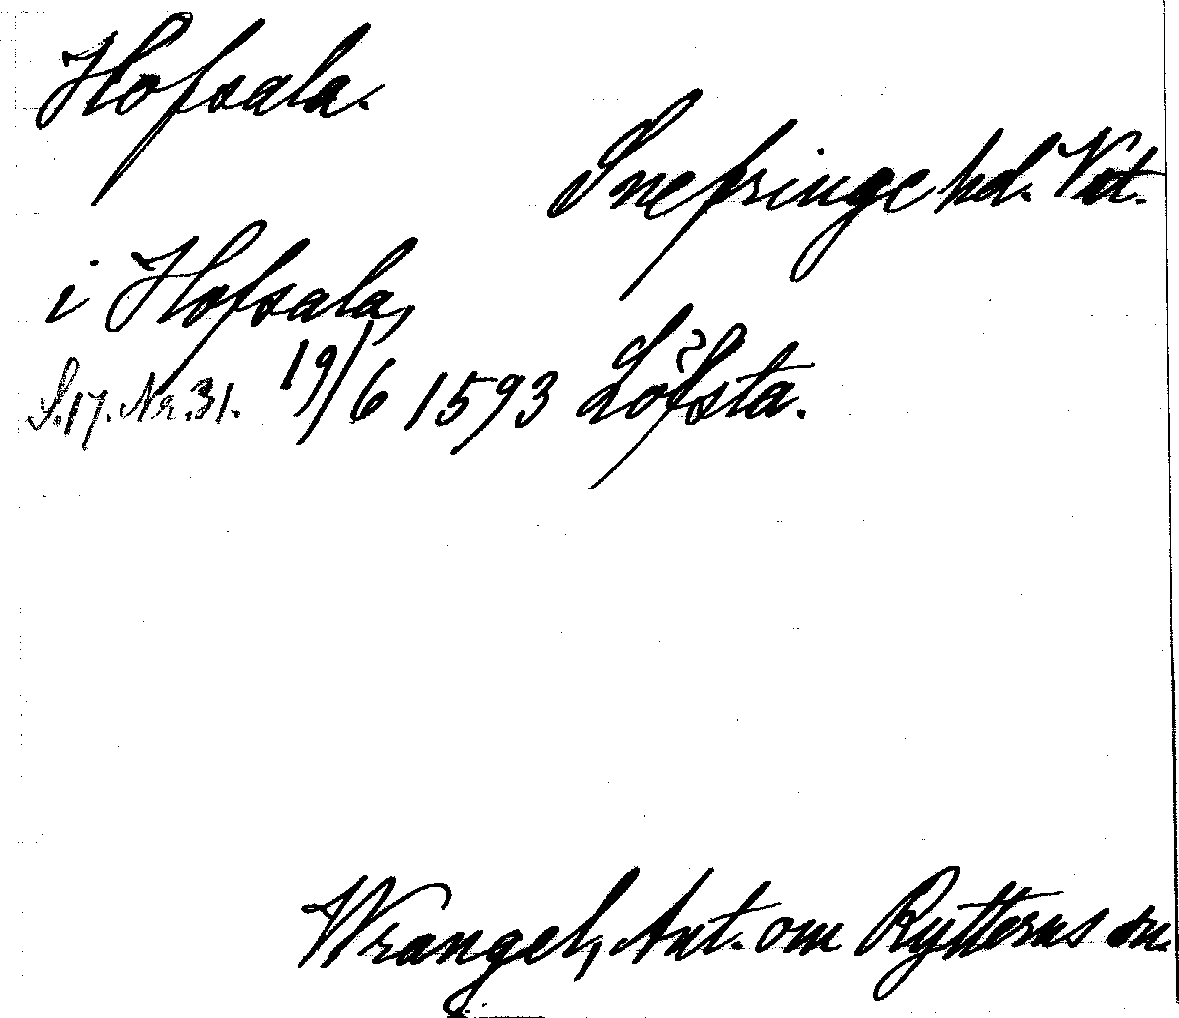 Hofsala.
Snefringe hd. Vst.
i Hofsala,
S.17. Nr.31. 19/6 1593 Löfsta.
Wrangel, Ant. om Rytterns sn.